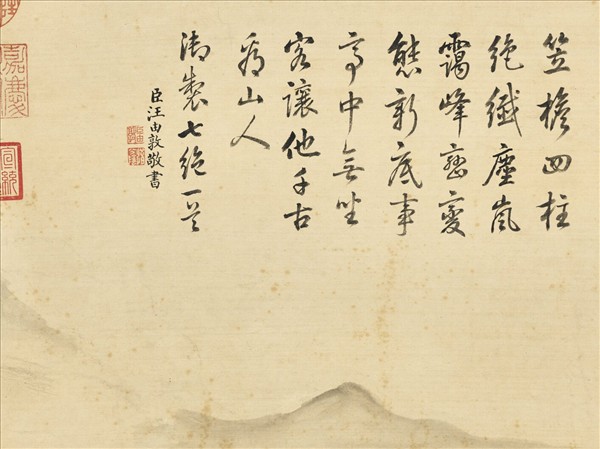 笠檐四柱
絶纖塵嵐
靄峰巒變
態新底事
亭中無坐
客讓他千古
為山人
御製七絶一首
臣汪由敦敬書
嘉慶
宣統